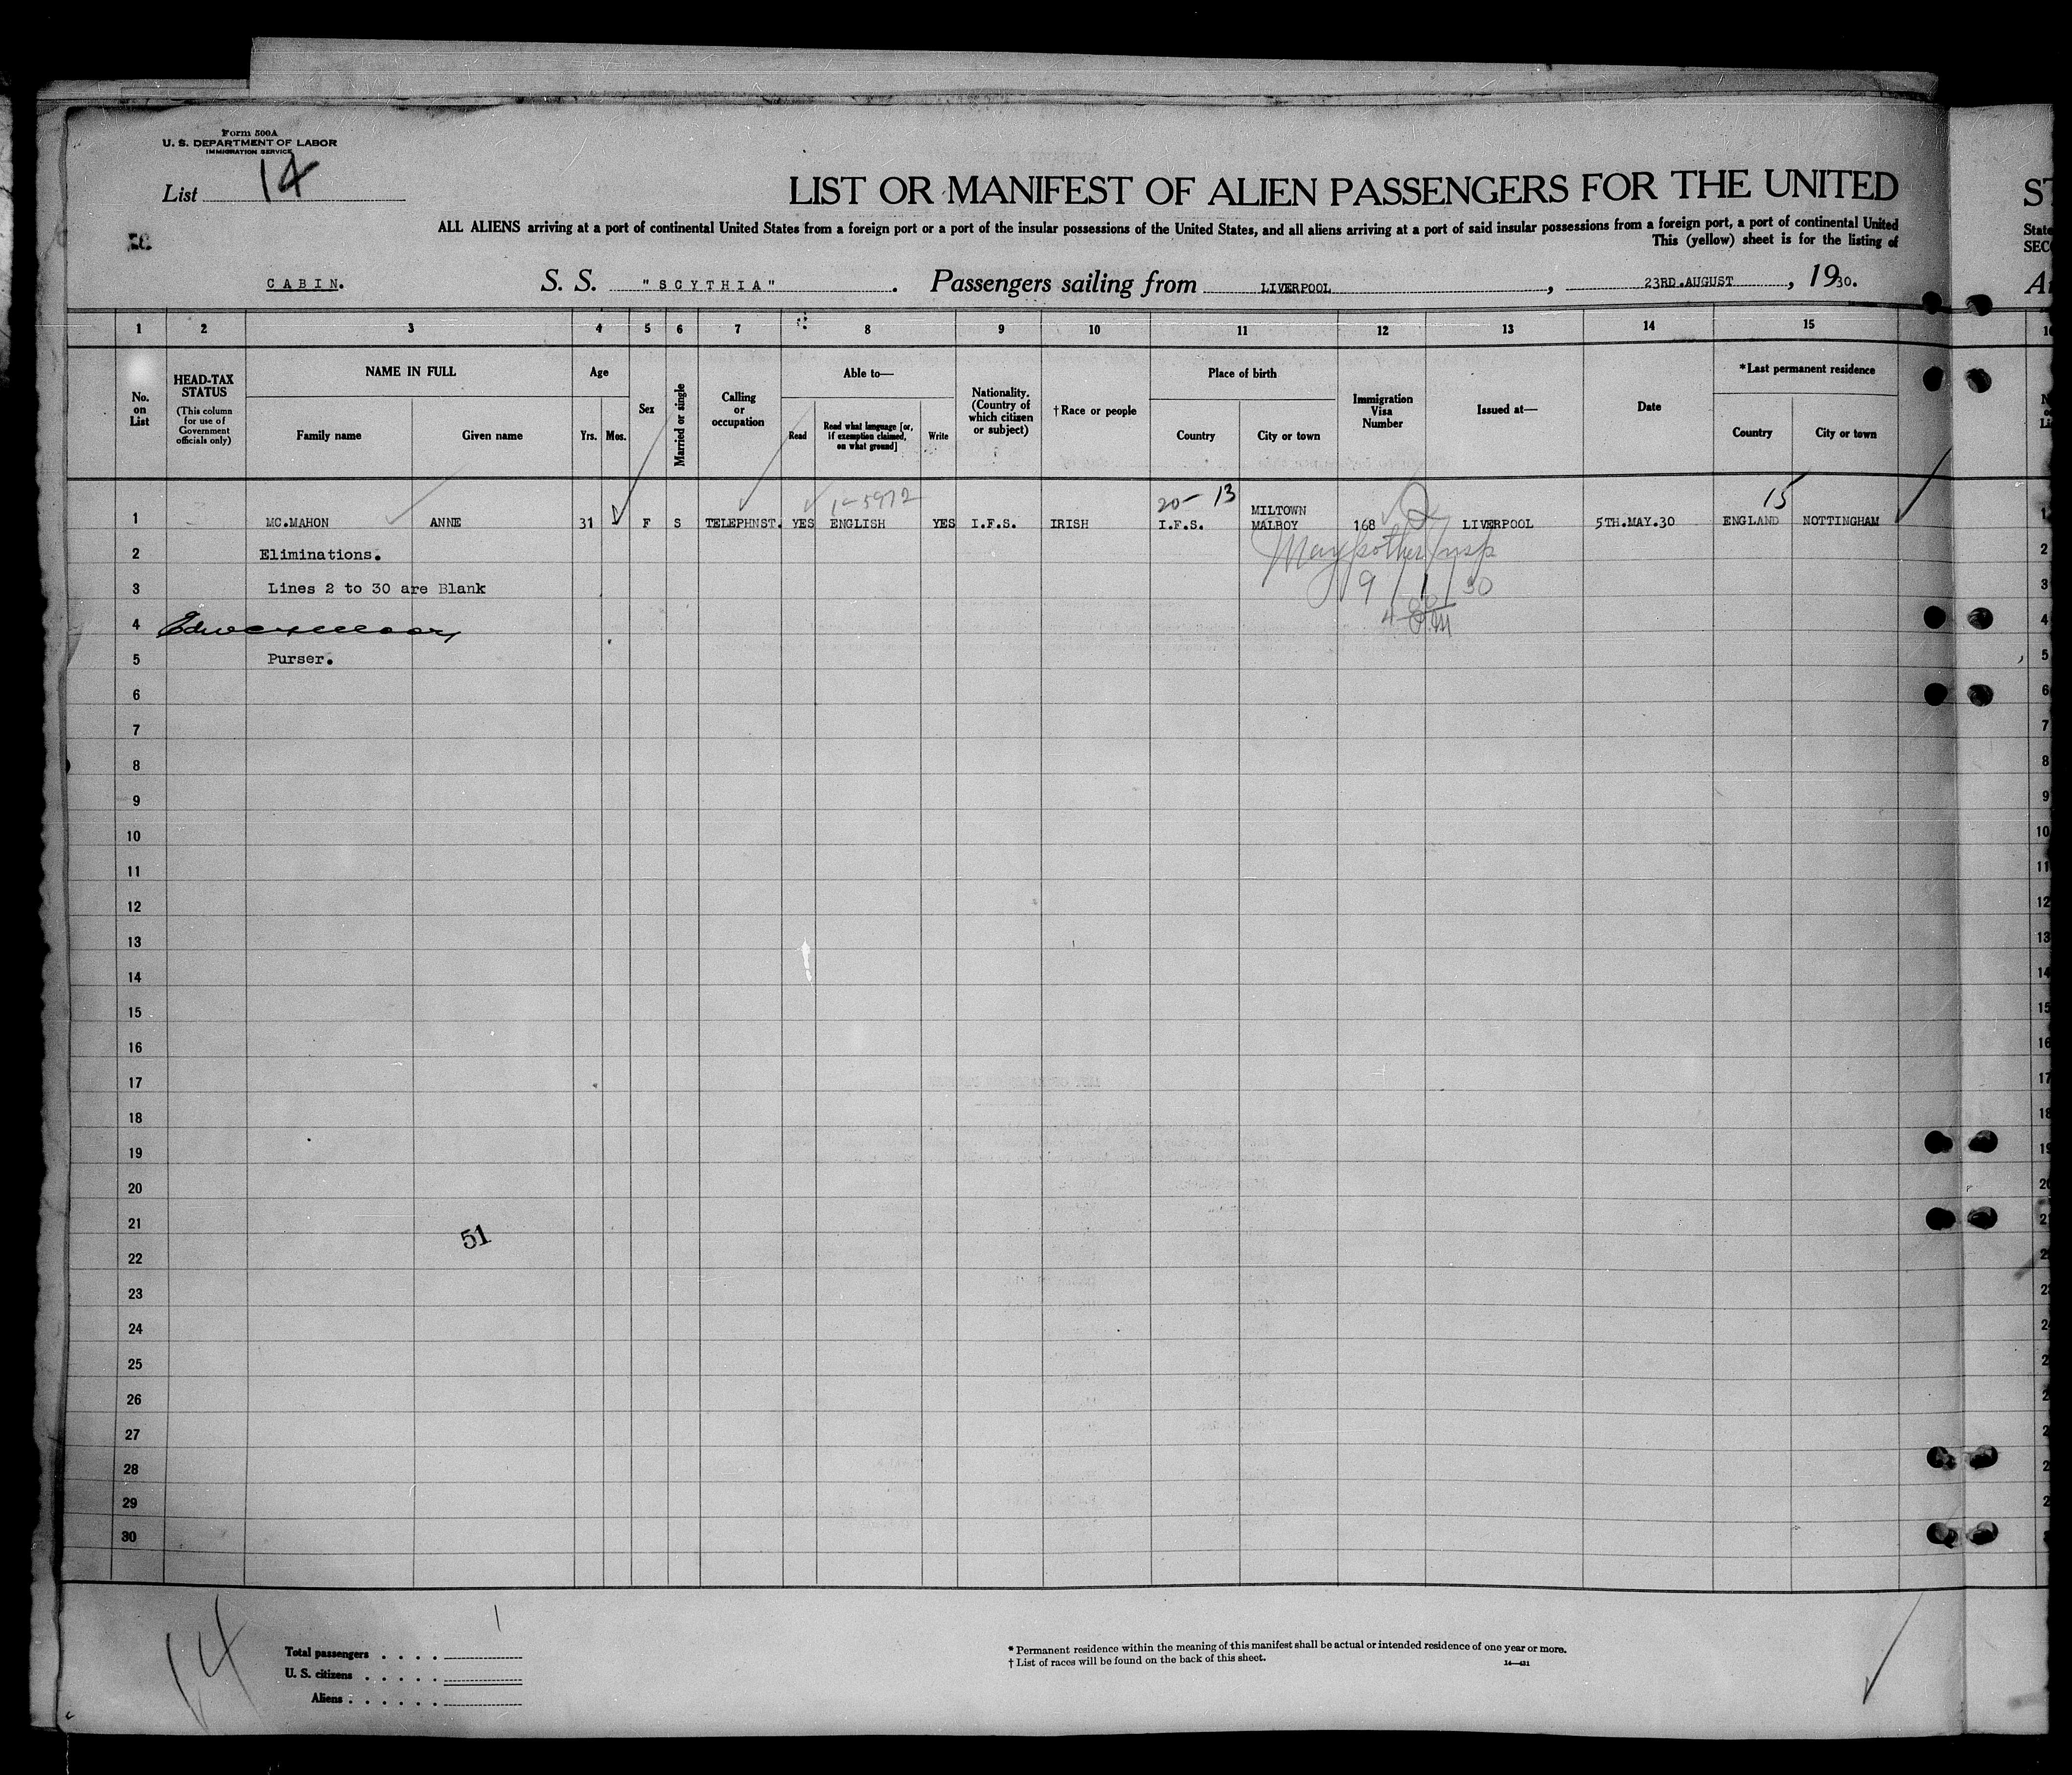 Form 500A
U. S. DEPARTMENT OF LABOR
IMMIGRATION SERVICE
List 14
LIST OR MANIFEST OF ALIEN PASSENGERS FOR THE UNITED
ST
ALL ALIENS arriving at a port of continental United States from a foreign port or a port of the insular possessions of the United States, and all aliens arriving at a port of said insular possessions from a foreign port, a port of continental United
State
This (yellow) sheet is for the listing of
SEC
CABIN. S. S. "SCYTHIA". Passengers sailing from LIVERPOOL, 23RD.AUGUST, 1930.
1 2 3 4 5 6 7 8 9 10 11 12 13 14 15
No. on List
HEAD-TAX STATUS
(This column for use of Government officials only)
NAME IN FULL
Family name
Given name
Age
Yrs.
Mos.
Sex
Married or single
Calling or occupation
Able to—
Read
Read what language [or, if exemption claimed, on what ground]
Write
Nationality. (Country of which citizen or subject)
†Race or people
Place of birth
Country
City or town
Immigration Visa Number
Issued at—
Date
*Last permanent residence
Country
City or town
1-5972 20- 13 15
1 MC.MAHON ANNE 31 F S TELEPHNST. YES ENGLISH YES I.F.S. IRISH I.F.S. MILTOWN MALBOY 168 LIVERPOOL 5TH.MAY.30 ENGLAND NOTTINGHAM
2 Eliminations.
3 Lines 2 to 30 are Blank
9/1/30
4
5 Purser.
6
7
8
9
10
11
12
13
14
15
16
17
18
19
20
21
51
22
23
24
25
26
27
28
29
30
14
1
Total passengers . . . .
U. S. citizens . . . . .
Aliens . . . . . .
* Permanent residence within the meaning of this manifest shall be actual or intended residence of one year or more.
† List of races will be found on the back of this sheet.
14—421